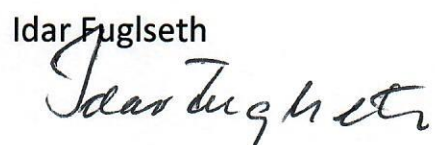 Idar Fuglseth
Idar Fuglseth